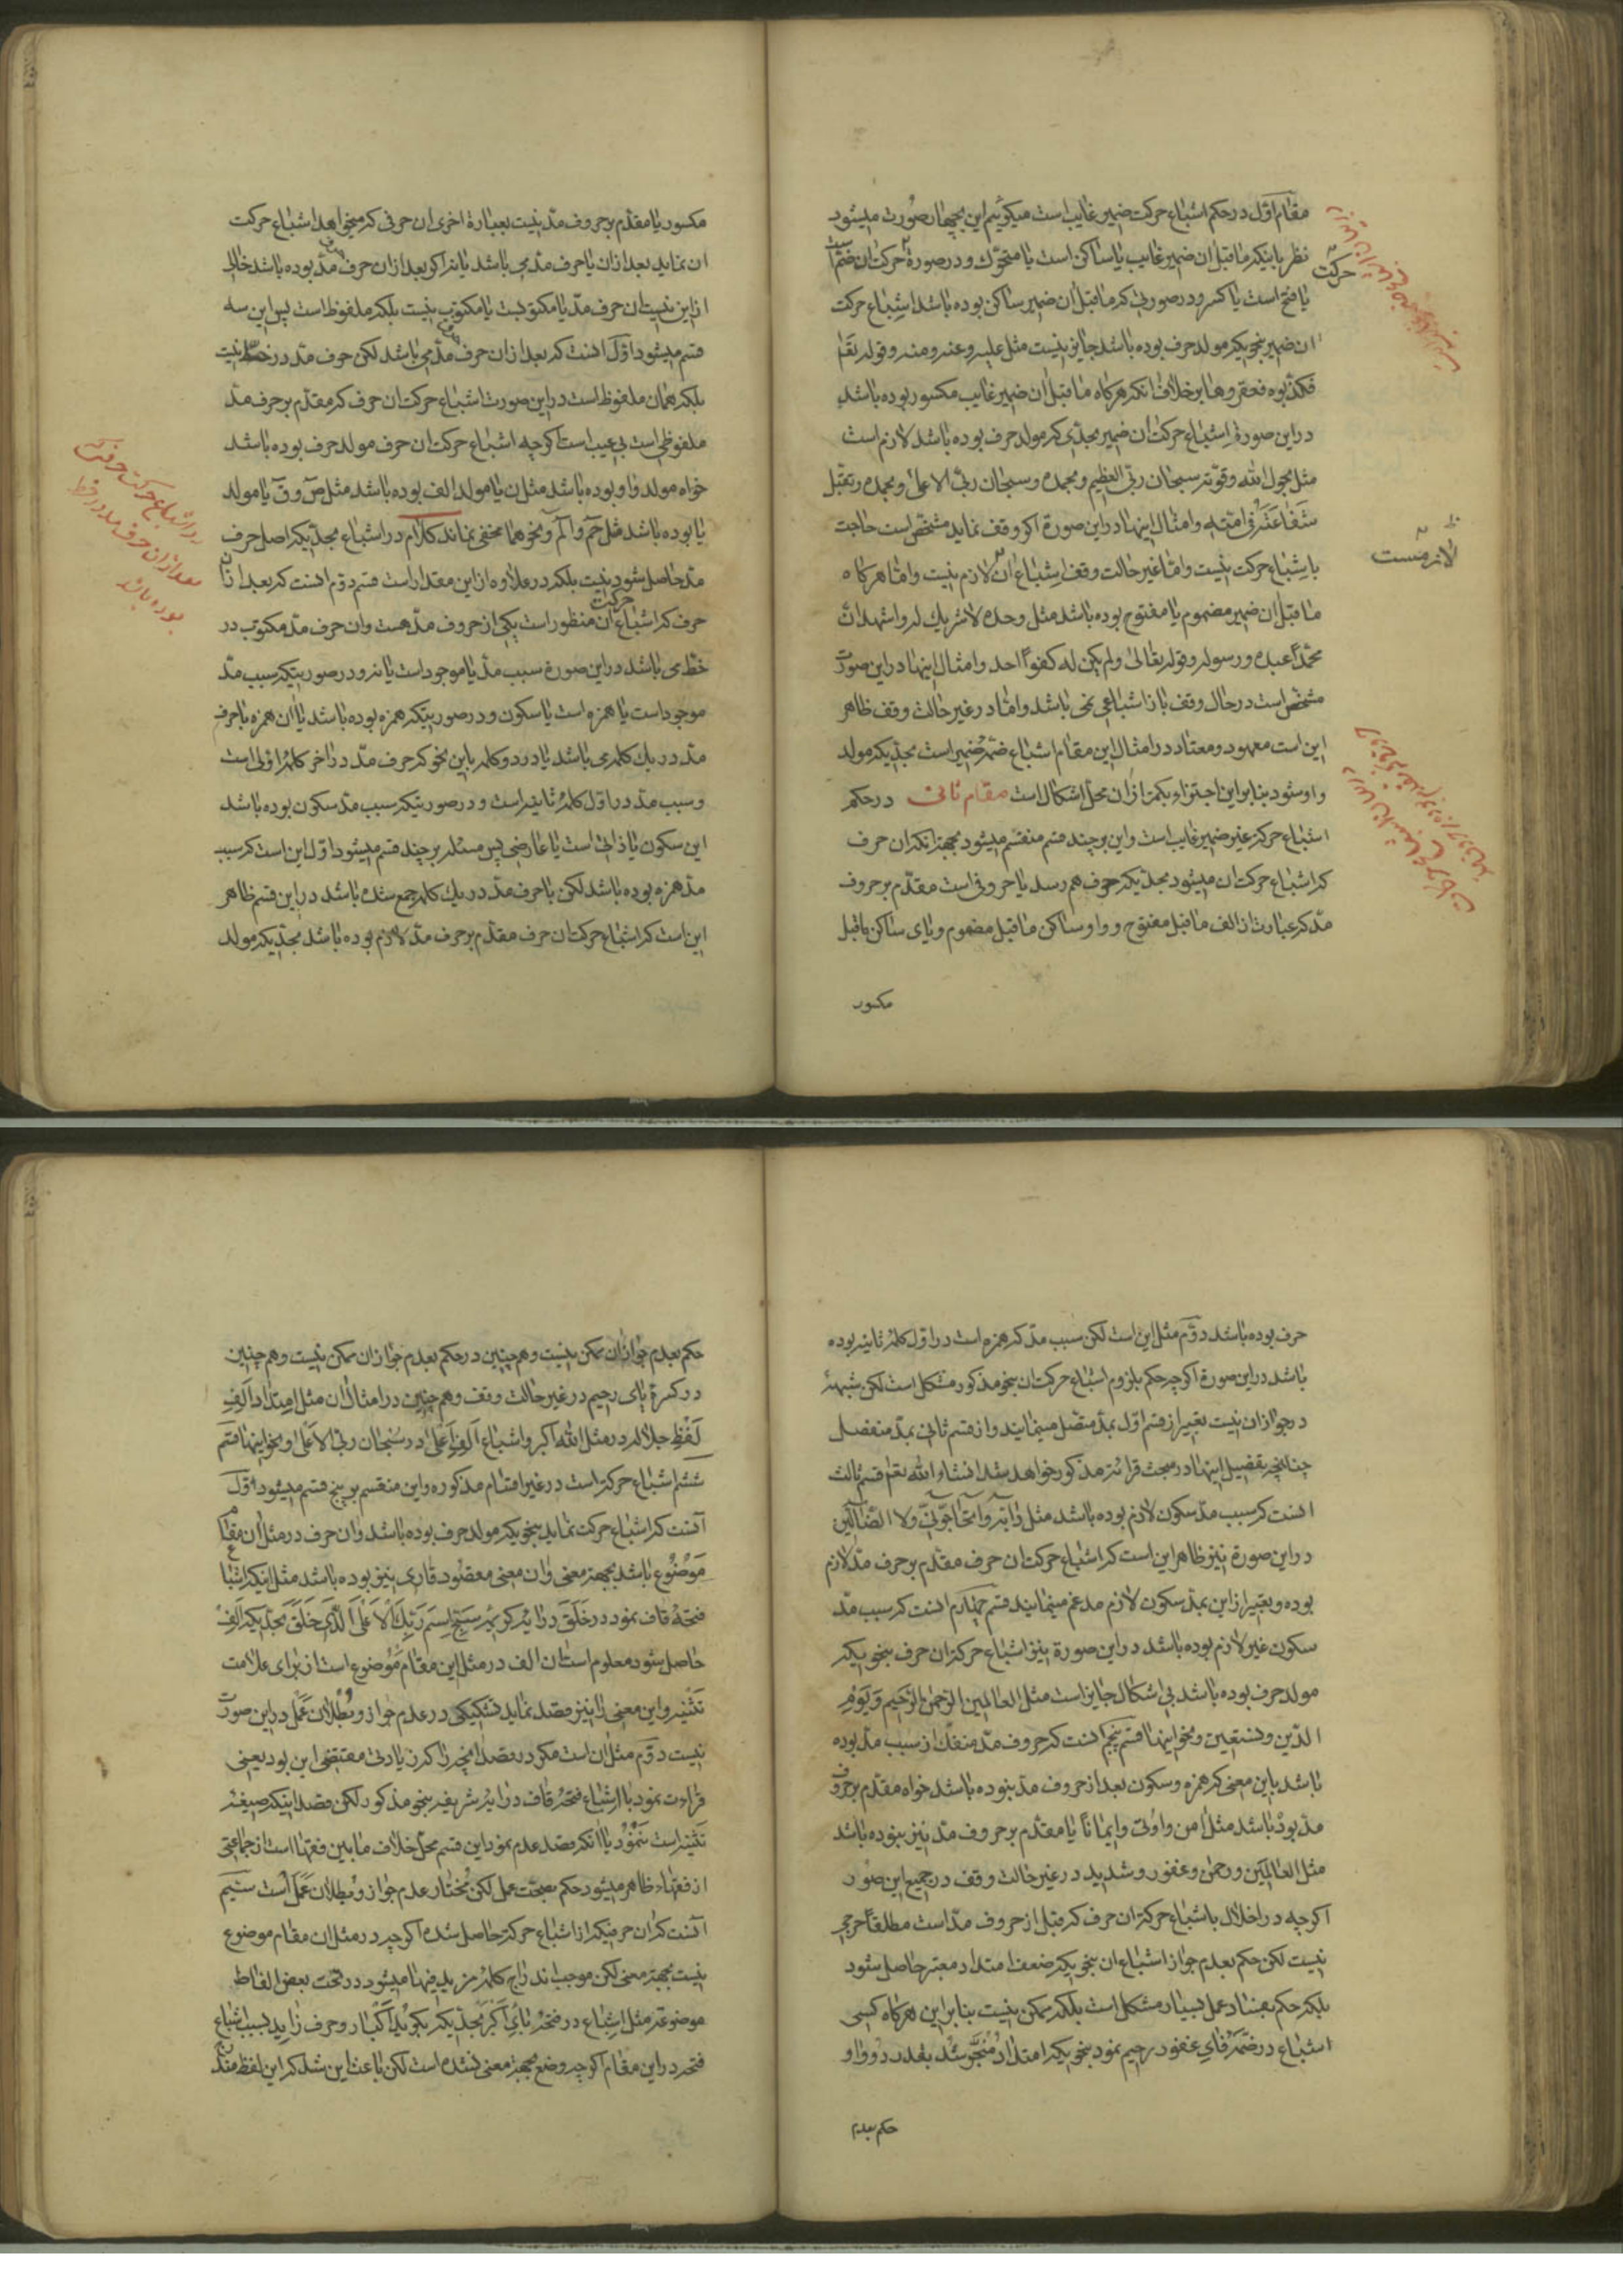 مقام اول در حکم اشباع حرکت ضمیر غایب است میکوئیم این بچهار صورت میشود
نظر باینکه ماقبل ان ضمیر غایب یا ساکن است یا متحرک و در صورة حرکت ان ضم است
حرکت
یا فتح است یا کسر و در صورتی که ماقبل ان ضمیر ساکن بوده باشد اشباع حرکت
ان ضمیر بنحویکه مولد حرف بوده باشد جایز نیست مثل علیه و عنه و منه و قوله تعالی
فکذبوه فعقروها بر خلاف انکه هرکاه ماقبل ان ضمیر غایب مکسور بوده باشد
در این صورة اشباع حرکت ان ضمیر بحدی که مولد حرف بوده باشد لازم است
مثل بحول الله و قوته سبحان ربی العظیم و بحمده و سبحان ربی الاعلی و بحمده و تقبل
شفاعته فی امته و امثال اینها در این صورة اکر وقف نماید مشخص است حاجت
باشباع حرکت نیست و اما غیر حالت وقف اشباع ان لازم نیست و اما هرکاه
لازمست
ماقبل ان ضمیر مضموم یا مفتوح بوده باشد مثل وحده لا شریک له و اشهد ان
محمدا عبده و رسوله و قوله تعالی و لم یکن له کفوا احد و امثال اینها در این صورت
مشخص است در حال وقف باز اشباعی نمی باشد و اما در غیر حالت وقف ظاهر
این است معهود و معتاد در امثال این مقام اشباع ضمه ضمیر است بحدیکه مولد
واو شود بنابر این اجتزاء بکمتر از ان محل اشکال است مقام ثانی در حکم
اشباع حرکة غیر ضمیر غایب است و این بر چند قسم منقسم میشود بجهة انکه ان حرف
که اشباع حرکت ان میشود بحدیکه حرف هم رسد یا حروفی است مقدم بر حروف
مد که عبارت از الف ماقبل مفتوح و واو ساکن ماقبل مضموم و یای ساکن ماقبل
مکسور
مکسور یا مقدم بر حروف مد نیست بعبارة اخری ان حرفی که میخواهد اشباع حرکت
ان نماید بعد از ان یا حرف مد می باشد یا نه اکر بعد از ان حرف مد بوده باشد خالی
از این نیست ان حرف مد یا مکتوبست یا مکتوب نیست بلکه ملفوظ است پس این سه
قسم میشود اول انست که بعد از ان حرف مد می باشد لکن حرف مد در خط نیست
بلکه همان ملفوظ است در این صورت اشباع حرکت ان حرف که مقدم بر حرف مد
ملفوظی است بی عیب است اکر چه اشباع حرکت ان حرف مولد حرف بوده باشد
خواه مولد واو بوده باشد مثل ن یا مولد الف بوده باشد مثل ص و ق یا مولد
یا بوده باشد مثل حم و الم و نحوهما مخفی نماند کلام در اشباع بحدیکه اصل حرف
مد حاصل شود نیست بلکه در علاوه از این مقدار است قسم دوم انست که بعد از ان
حرف که اشباع ان منظور است یکی از حروف مد هست و ان حرف مد مکتوب در
حرکت
خط می باشد در این صورة سبب مد یا موجود است یا نه و در صورتیکه سبب مد
موجود است یا همزه است یا سکون و در صورتیکه همزه بوده باشد یا ان همزه با حرف
مد در یک کلمه می باشد یا در دو کلمه باین نحو که حرف مد در اخر کلمه اولی است
و سبب مد در اول کلمه ثانیه است و در صورتیکه سبب مد سکون بوده باشد
این سکون یا ذاتی است یا عارضی پس مسئله بر چند قسم میشود اول این است که سبب
مد همزه بوده باشد لکن با حرف مد در یک کلمه جمع شده باشد در این قسم ظاهر
این است که اشباع حرکت ان حرف مقدم بر حرف مد لازم بوده باشد بحدیکه مولد
حرف بوده باشد دوم مثل این است لکن سبب مد که همزه است در اول کلمه ثانیه بوده
باشد در این صورة اکر چه حکم بلزوم اشباع حرکت ان بنحو مذکور مشکل است لکن شبهه
در جواز ان نیست تعبیر از قسم اول بمد متصل مینمایند و از قسم ثانی بمد منفصل
چنانچه تفصیل اینها در مبحث قرائة مذکور خواهد شد انشاء الله تعالی قسم ثالث
انست که سبب مد سکون لازم بوده باشد مثل دابة و اتحاجونی و لا الضالین
در این صورة نیز ظاهر این است که اشباع حرکت ان حرف مقدم بر حرف مد لازم
بوده و تعبیر از این بمد سکون لازم مدغم مینمایند قسم چهارم انست که سبب مد
سکون غیر لازم بوده باشد در این صورة نیز اشباع حرکة ان حرف بنحویکه
مولد حرف بوده باشد بی اشکال جایز است مثل العالمین الرحمن الرحیم و یوم
الدین و نستعین و نحو اینها قسم پنجم انست که حروف مد منفک از سبب مد بوده
باشد باین معنی که همزه و سکون بعد از حروف مد نبوده باشد خواه مقدم بر حروف
مد بوده باشد مثل امن و اوتی و ایمانا یا مقدم بر حروف مد نیز نبوده باشد
مثل العالمین و رحمن و غفور و شدید در غیر حالت وقف در جمیع این صور
اکر چه در اخلال باشباع حرکة ان حرف که قبل از حروف مد است مطلقا حرجی
نیست لکن حکم بعدم جواز اشباع ان بنحویکه ضعف امتداد معتبر حاصل شود
بلکه حکم بفساد عمل بسیار مشکل است بلکه ممکن نیست بنابر این هرکاه کسی
اشباع در ضمه فای غفور رحیم نمود بنحویکه امتداد منجر شد بقدر دو واو
حکم بعدم
حکم بعدم جواز ان ممکن نیست و هم چنین در حکم بعدم جواز ان ممکن نیست و هم چنین
در کسرة یای رحیم در غیر حالت وقف و هم چنین در امثال ان مثل امتداد الف
لفظ جلاله در مثل الله اکبر و اشباع الف اعلی در سبحان ربی الاعلی و نحو اینها قسم
ششم اشباع حرکة است در غیر اقسام مذکوره و این منقسم بر پنج قسم میشود اول
انست که اشباع حرکت نماید بنحویکه مولد حرف بوده باشد و ان حرف در مثل ان مقام
موضوع باشد بجهة معنی و ان معنی مقصود قاری نیز بوده باشد مثل اینکه اشباع
فتحه قاف نمود در خلق در ایه کریمه سبح اسم ربک الاعلی الذی خلق بحدیکه الف
حاصل شود معلوم است ان الف در مثل این مقام موضوع است از برای علامت
تثنیه و این معنی را نیز قصد نماید تشکیکی در عدم جواز و بطلان عمل در این صورت
نیست دوم مثل ان است مکر در قصد انچه را که زیادتی مقتضی این بود یعنی
قراءت نمود با اشباع فتحه قاف در ایه شریفه بنحو مذکور لکن قصد اینکه صیغه
تثنیه است ننمود یا انکه قصد عدم نمود این قسم محل خلاف مابین فقها است از جماعتی
از فقهاء ظاهر میشود حکم بصحت عمل لکن مختار عدم جواز و بطلان عمل است سیم
انست که ان حرفیکه از اشباع حرکة حاصل شده اکر چه در مثل ان مقام موضوع
نیست بجهة معنی لکن موجب اندراج کلمه مزید فیها میشود در تحت بعض الفاظ
موضوعه مثل اشباع در فتحه بای اکبر بحدیکه بکوید اکبار و حرف زاید بسبب اشباع
فتحه در این مقام اکر چه وضع بجهة معنی نشده است لکن باعث این شد که این لفظ مندرج